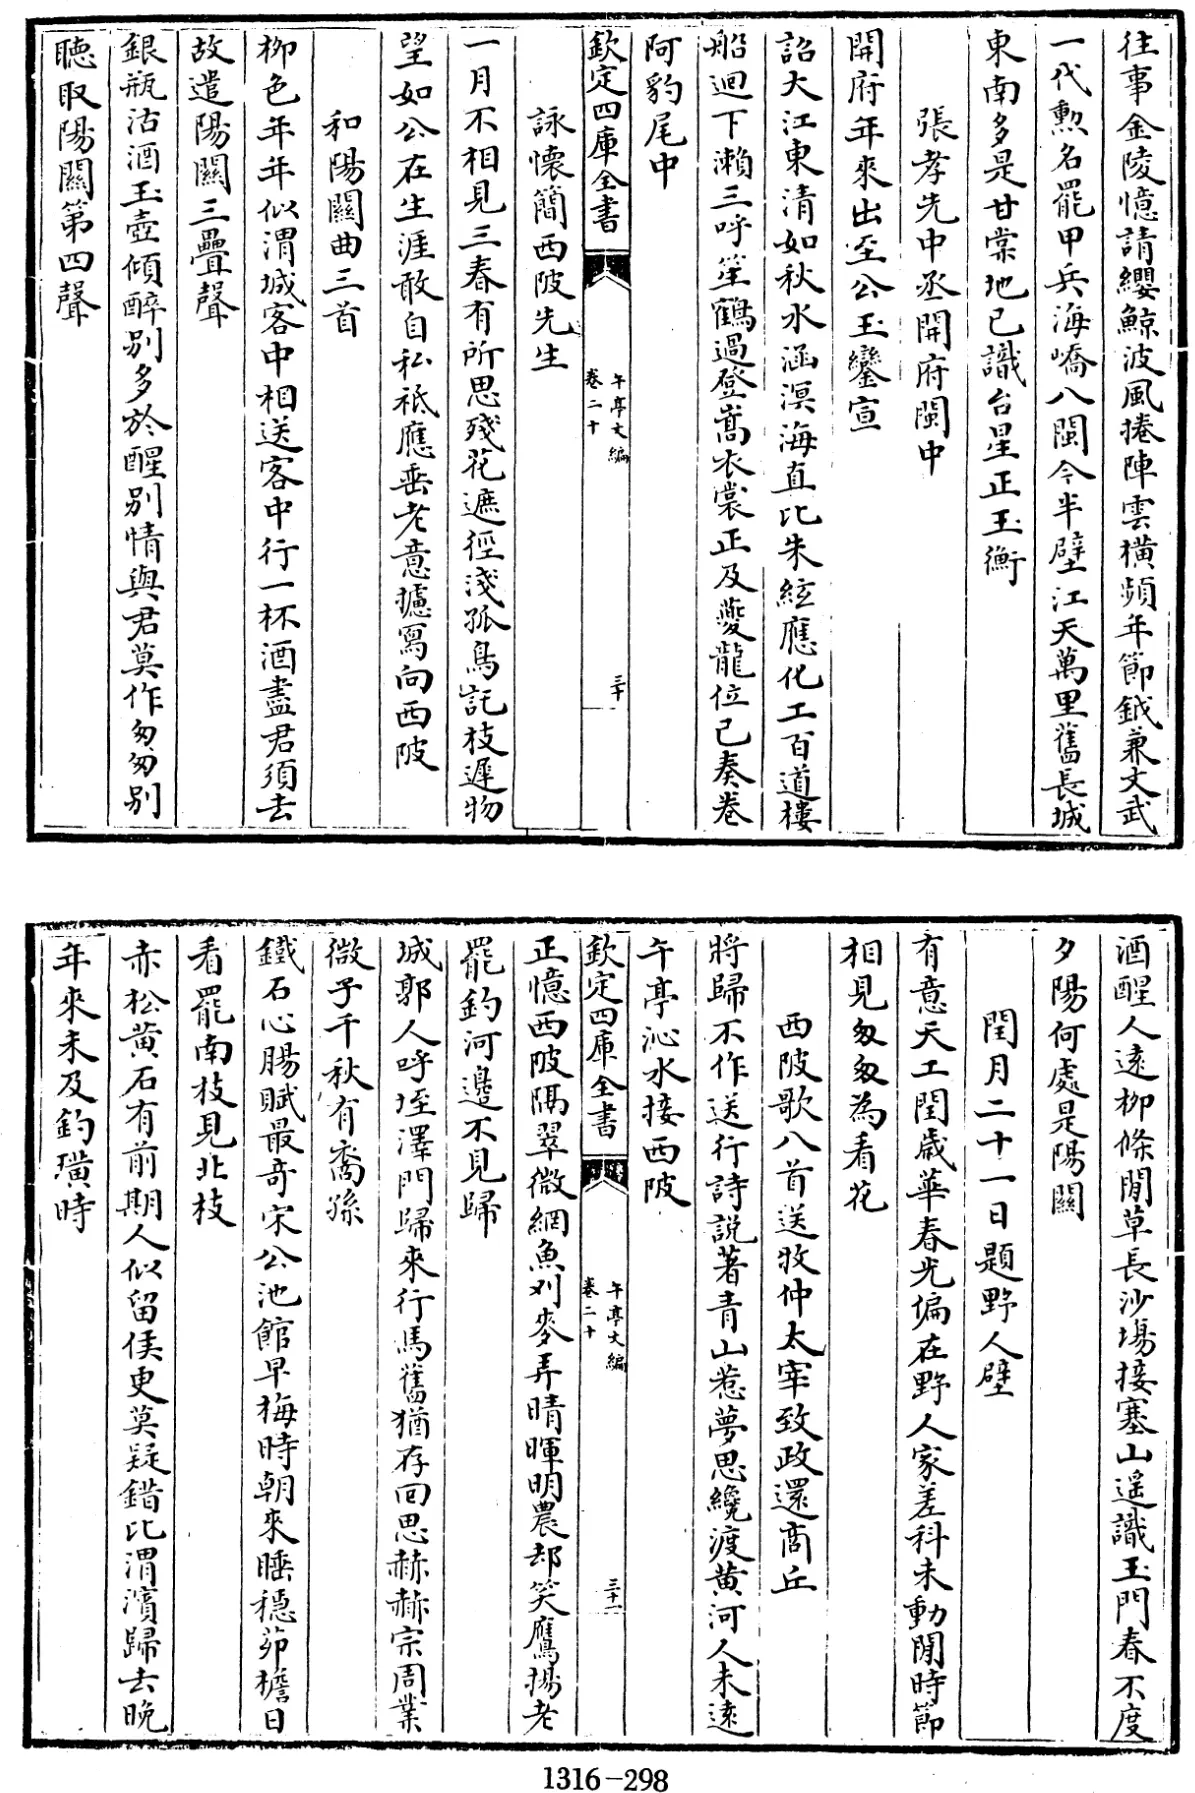 往事金陵憶請纓鯨波風捲陣雲橫頻年節鉞兼文武
一代勲名罷甲兵海嶠八閩今半壁江天萬里舊長城
東南多是甘棠地已識台星正玉衡
張孝先中丞開府閩中
開府年來出至公玉鑾宣
詔大江東清如秋水涵溟海直比朱絃應化工百道樓
船迴下瀨三呼笙鶴過登嵩衣裳正及夔龍位已奏卷
阿豹尾中
欽定四庫全書
午亭文編
卷二十
三十
詠懷簡西陂先生
一月不相見三春有所思殘花遮徑淺孤鳥託枝遲物
望如公在生涯敢自私祗應垂老意攄寫向西陂
和陽關曲三首
柳色年年似渭城客中相送客中行一杯酒盡君須去
故遣陽關三疊聲
銀瓶沽酒玉壺傾醉别多於醒别情與君莫作匆匆别
聽取陽關第四聲
酒醒人遠柳條閒草長沙場接塞山遥識玉門春不度
夕陽何處是陽關
閏月二十一日題野人壁
有意天工閏歲華春光偏在野人家差科未動閒時節
相見匆匆為看花
西陂歌八首送牧仲太宰致政還商丘
將歸不作送行詩説著青山惹夢思纔渡黄河人未遠
午亭沁水接西陂
欽定四庫全書
午亭文編
卷二十
三十一
正憶西陂隔翠微網魚刈麥弄晴暉明農却笑鷹揚老
罷釣河邊不見歸
城郭人呼垤澤門歸來行馬舊猶存回思赫赫宗周業
微子千秋有裔孫
鐵石心腸賦最奇宋公池館早梅時朝來睡穩茆檐日
看罷南枝見北枝
赤松黄石有前期人似留侯更莫疑錯比渭濱歸去晚
年來未及釣璜時
1316-298